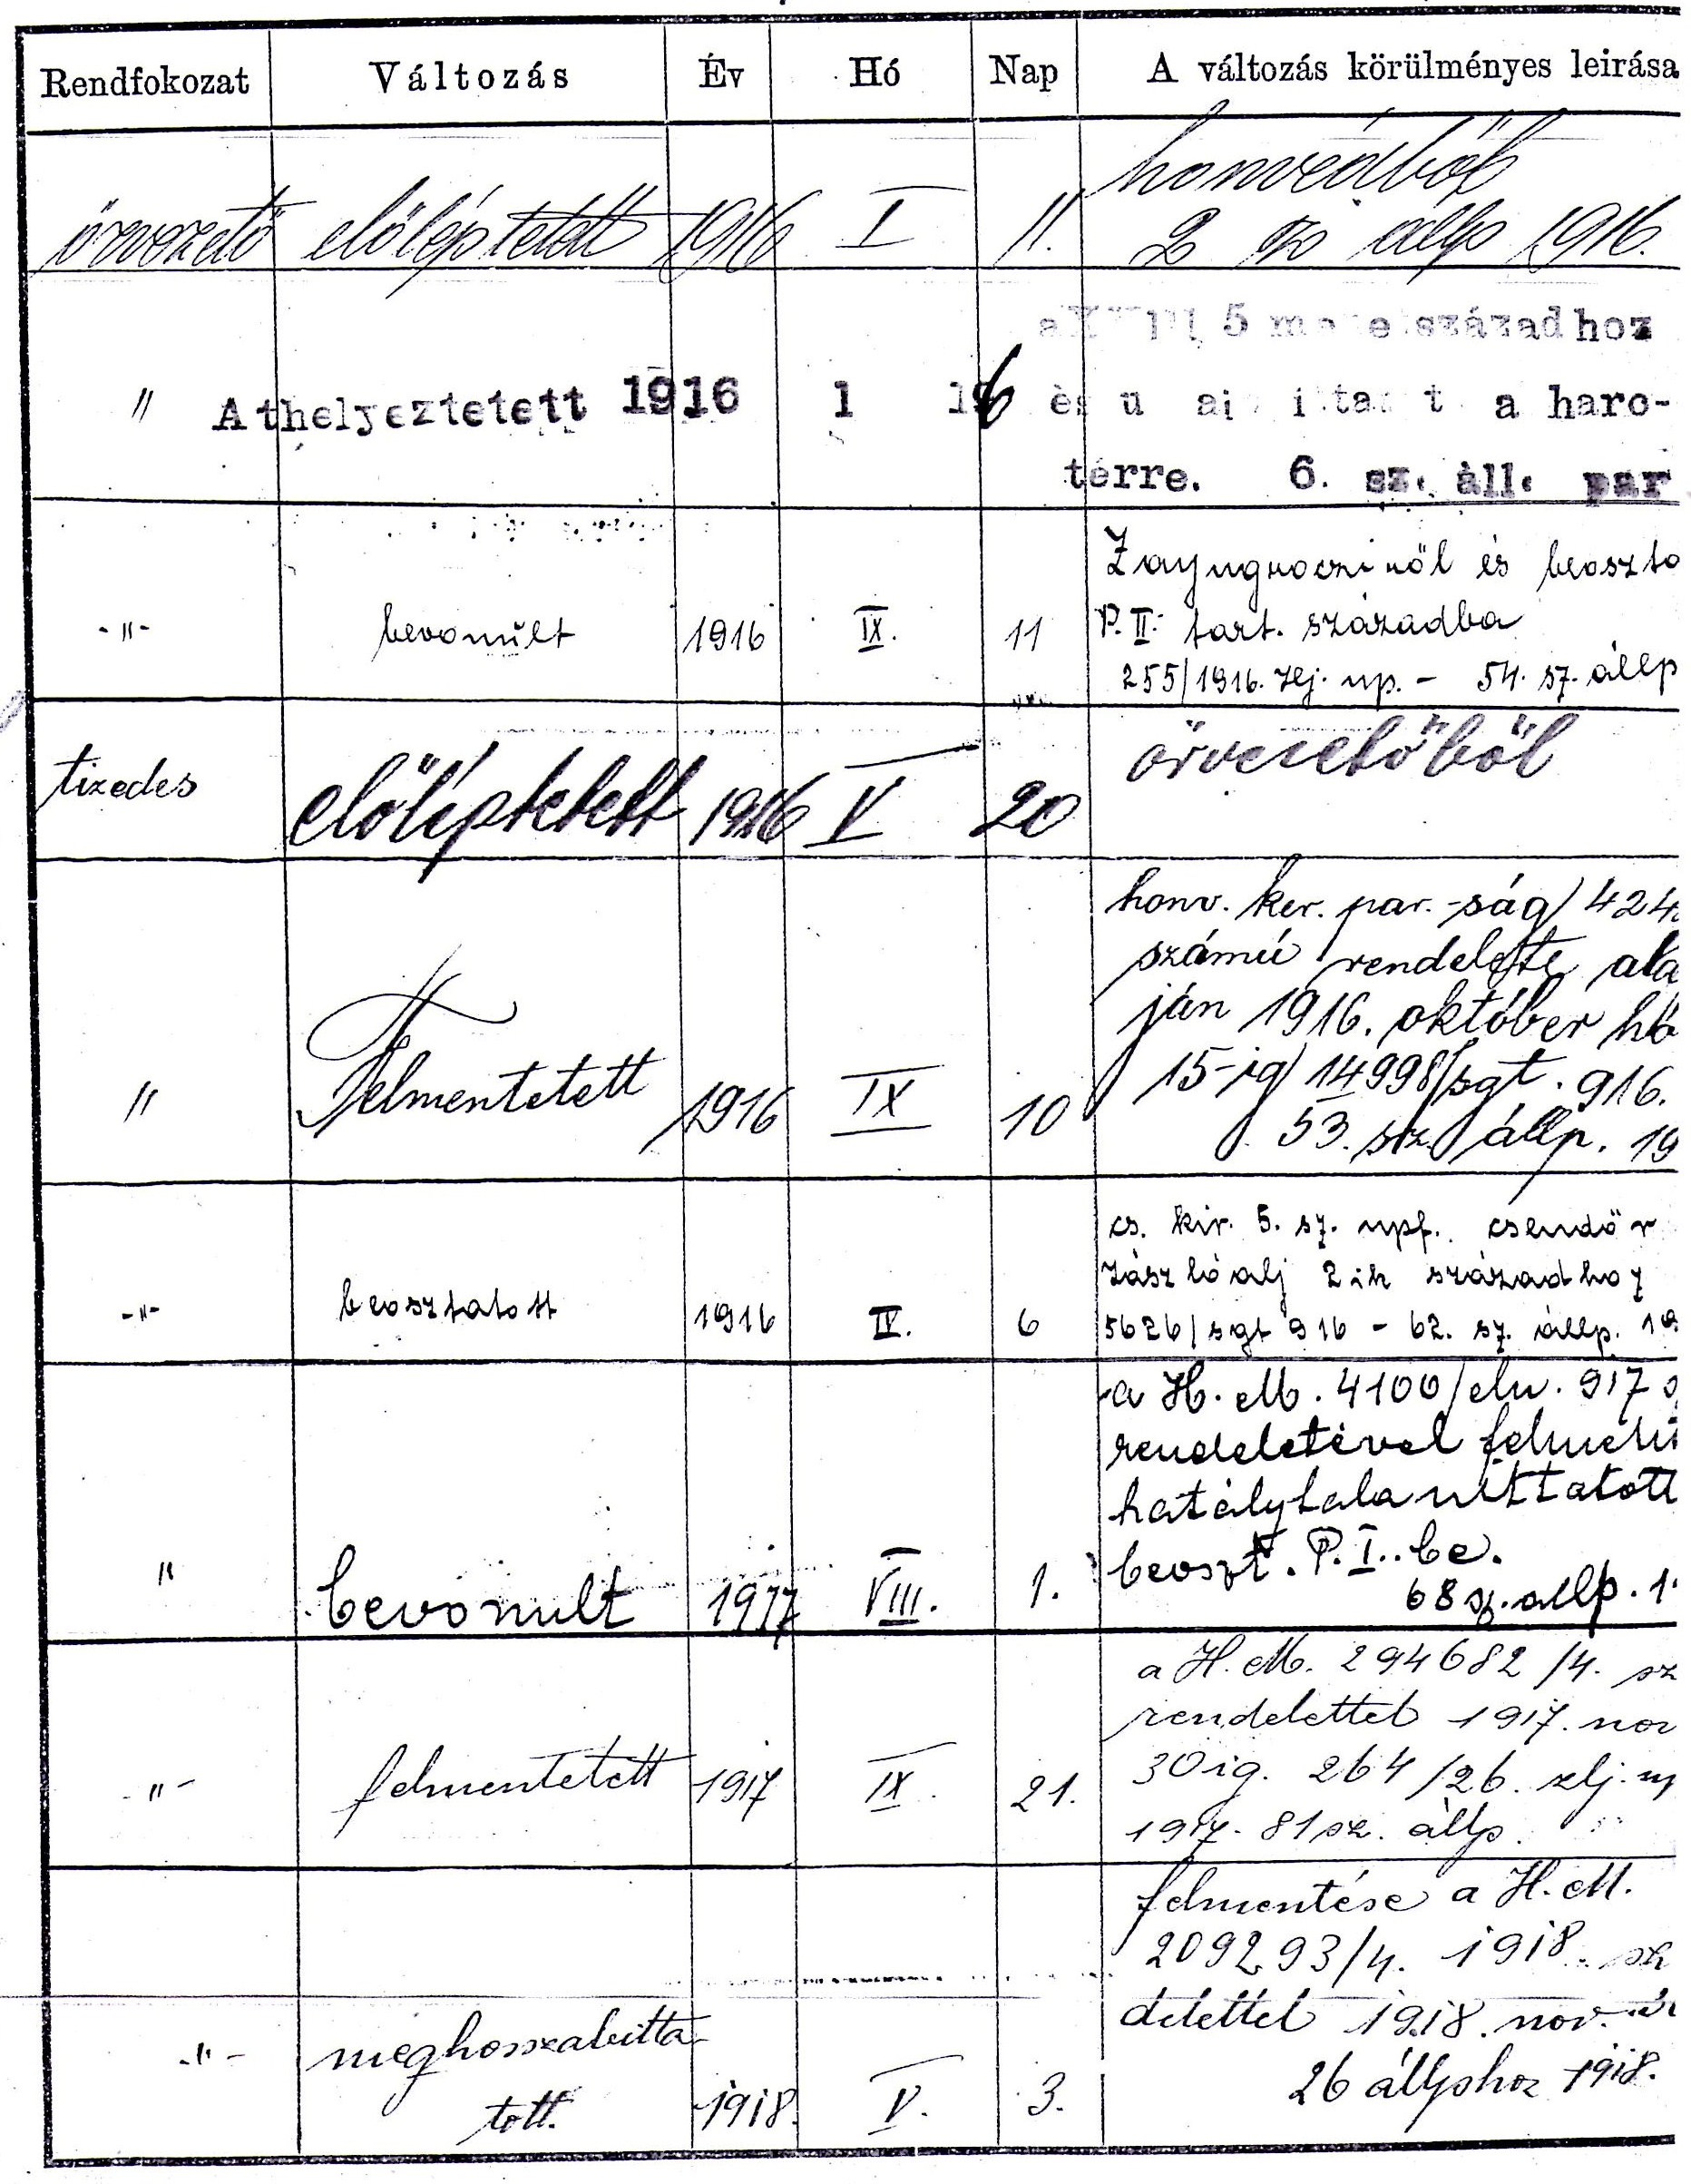 Rendfokozat Változás Év Hó Nap A változás körülményes leirása
honvédből
őrvezető előléptetett 1916 I 11. 2 sz állp 1916.
5 századhoz
" Athelyeztetett 1916 1 16 és u a harc-
térre. 6. sz. áll. par
Zayugrocziról és beoszto
-"- bevonult 1916 IX. 11 P. II. tart. századba
255/1916. zlj. np. - 54. sz. állp
tizedes előléptetett 1916 V 20 őrvezetőből
honv. ker. par.-ság 424
számú rendelete ala
ján 1916. október hó
" Felmentetett 1916 IX 10 15-ig 14998/sgt. 916.
53. sz. állp. 19
cs. kir. 5. sz. npf. csendőr
zászlóalj 2ik századhoz
-"- beosztatott 1916 IV. 6 5626/sgt 916 - 62. sz. állp. 19
a H.M. 4100/eln. 917
rendeletével felmen
hatálytalanittatott
beoszt. P.I..be.
" bevonult 1917 VIII. 1. 68 sz. állp. 1
a H.M. 294682/4. sz
rendelettel 1917. nov
-"- felmentetett 1917 IX. 21. 30ig. 264/26. zlj. np
1917. 81 sz. állp.
felmentése a H.M.
209293/4. 1918. sz
delettel 1918. nov.
-"- meghosszabitta- 26 állphoz 1918.
tott. 1918. V. 3.